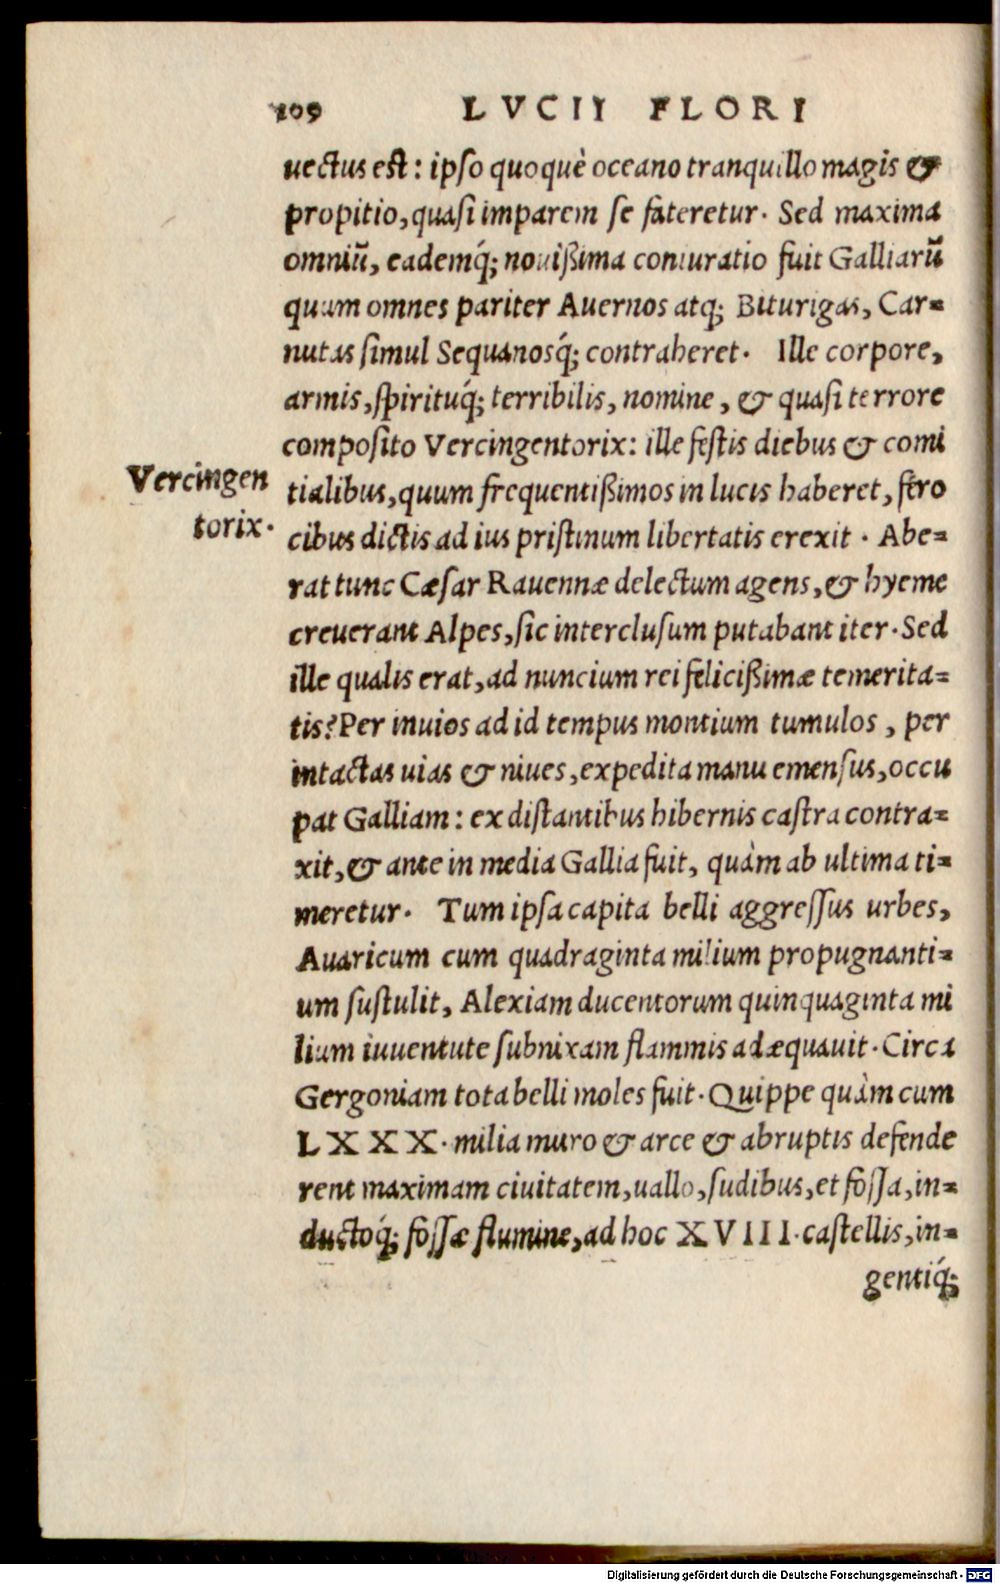 109 LVCII FLORI
uectus est: ipso quoquè oceano tranquillo magis &
propitio, quasi imparem se fateretur. Sed maxima
omniũ, eademq́; nouißima coniuratio fuit Galliarũ
quum omnes pariter Auernos atq; Biturigas, Car=
nutas simul Sequanosq́; contraheret. Ille corpore,
armis, spirituq́; terribilis, nomine, & quasi terrore
composito Vercingentorix: ille festis diebus & comi
Vercingen
torix.
tialibus, quum frequentißimos in lucis haberet, fero
cibus dictis ad ius pristinum libertatis erexit. Abe=
rat tunc Cæsar Rauennæ delectum agens, & hyeme
creuerant Alpes, sic interclusum putabant iter. Sed
ille qualis erat, ad nuncium rei felicißimæ temerita=
tis? Per inuios ad id tempus montium tumulos, per
intactas uias & niues, expedita manu emensus, occu
pat Galliam: ex distantibus hibernis castra contra=
xit, & ante in media Gallia fuit, quàm ab ultima ti=
meretur. Tum ipsa capita belli aggressus urbes,
Auaricum cum quadraginta milium propugnanti=
um sustulit, Alexiam ducentorum quinquaginta mi
lium iuuentute subnixam flammis adæquauit. Circa
Gergoniam tota belli moles fuit. Quippe quàm cum
LXXX. milia muro & arce & abruptis defende
rent maximam ciuitatem, uallo, sudibus, et fossa, in=
ductoq́; fossæ flumine, ad hoc XVIII. castellis, in=
gentiq́;
Digitalisierung gefördert durch die Deutsche Forschungsgemeinschaft - DFG